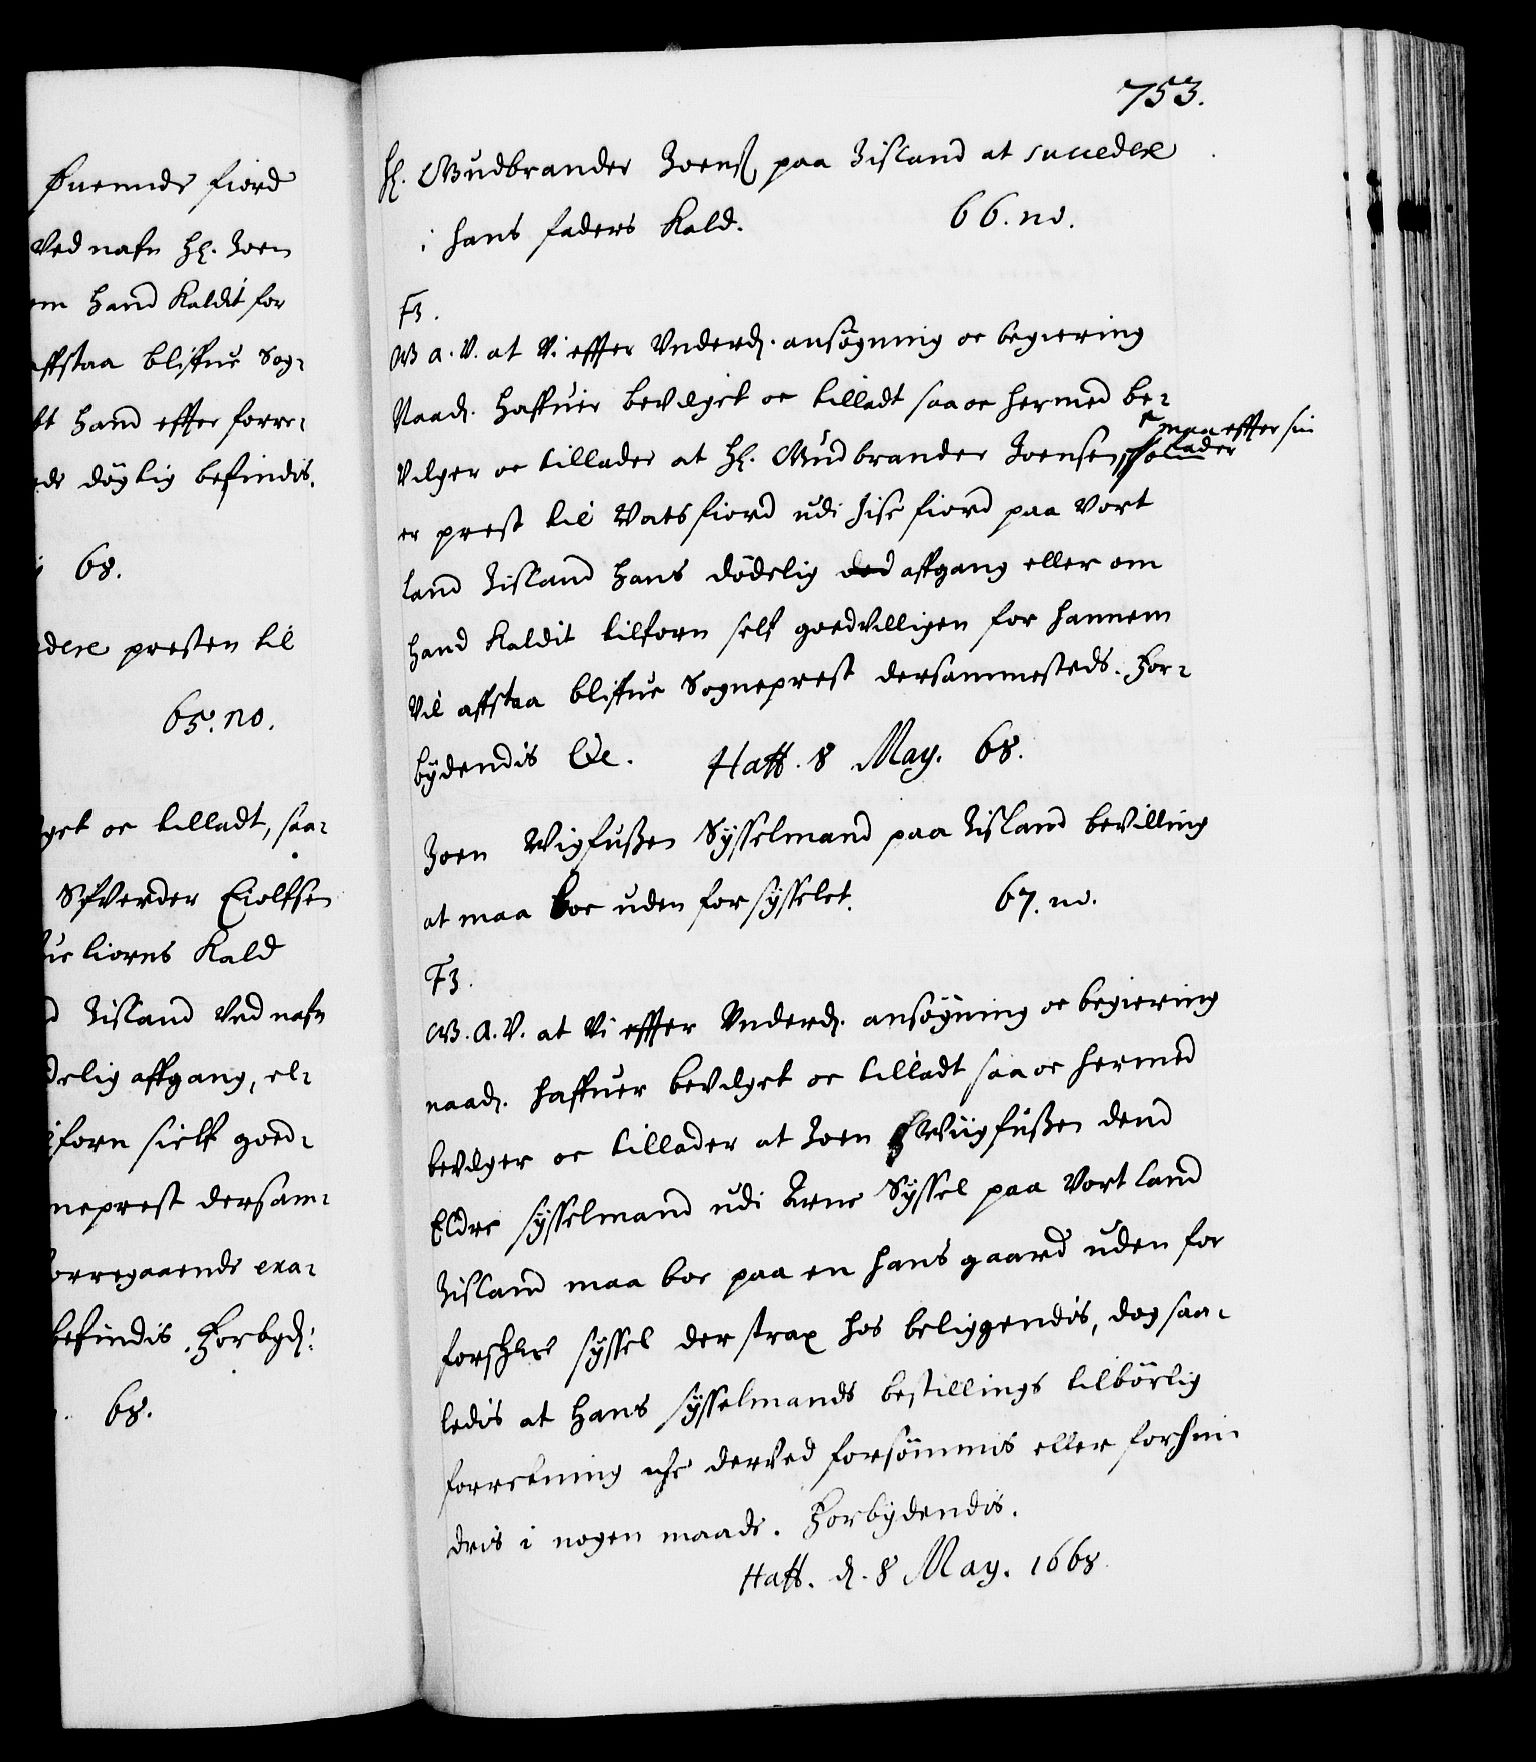 Øuemnds fiord
Ved nafn Hr. Joen
hand Kaldit for
affstaa bliffue Sog-
hand effter forre-
døgtig befindis.
68.
presten til
65. no.
oc tilladt, saa-
Eiolfsen
Kald
Iisland Ved nafn
affgang, el-
sielff goed-
neprest dersam-
orregaaende exa-
befindis. Forbyd:
68.
753.
Hr. Gudbrander Joens. paa Iisland at succedere
i hans faders Kald. 66. no.
F3.
G A. V. at Vi effter Vnderd. ansøgning oc begiering
Naad. haffuer bevilget oc tilladt saa oc hermed be-
vilger oc tillader at Hr. Gudbrander Joensen, maa effter sin
fader
er prest til Vatsfiord udi Iisefiord paa Vort
land Iisland hans dødelig ded affgang eller om
hand Kaldit tilforn self goedvilligen for hannem
Vil affstaa bliffue Sogneprest dersammesteds. For-
bydendis &c. Haff. 8 May. 68.
Joen Wigfussen Sysselmand paa Iisland bevilling
at maa boe uden for sysselet. 67. no.
F3.
G. A. V. at Vi effter Vnderd. ansøgning oc begiering
naad. haffuer bevilget oc tilladt saa oc hermed
bevilger oc tillader at Joen Wiigfussen dend
Eldre sysselmand udi Arne Syssel paa Vort land
Iisland maa boe paa en hans gaard uden for
forschr. syssel der strax hos beliggendis, dog saa-
ledis at hans sysselmands bestillings tilbörlig
forretning iche derved forsømmis eller forhin-
dris i nogen maade. Forbydendis.
Haff. d. 8 May. 1668